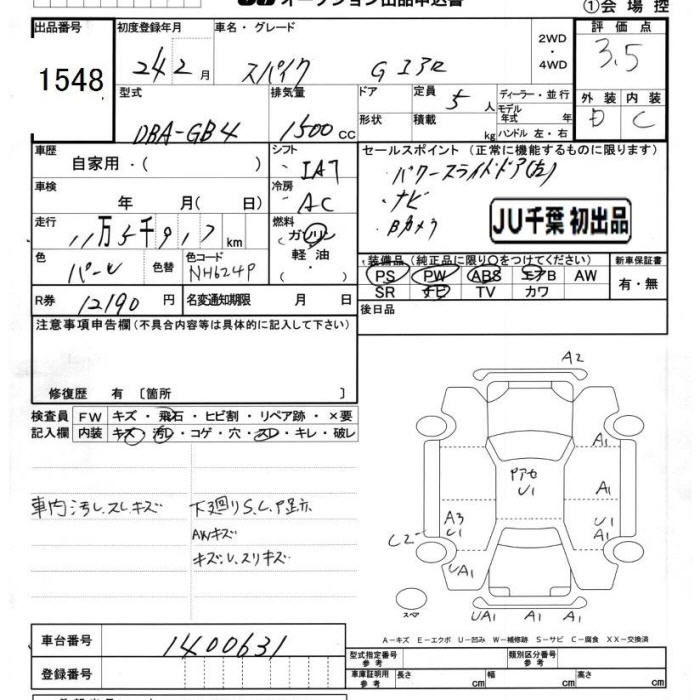 オークション出品申込書
①会場控
出品番号 初度登録年月 車名・グレード 評価点
1548 24 2 月 スパイク G エアロ 2WD ・ 4WD 3.5
型式 排気量 ドア 定員 5 人 ディーラー・並行 外装 内装
DBA-GB4 1500 cc 形状 積載 kg モデル年式 年 ハンドル 左・右 D C
車歴 自家用・( ) シフト IAT セールスポイント (正常に機能するものに限ります)
・パワースライドドア(左)
車検 年 月( 日) 冷房 AC ・ナビ
・Bカメラ
JU千葉 初出品
走行 11万5千917 km 燃料 ガソリン 軽油 ・
色 パール 色替 色コード NH624P 装備品 (純正品に限り○をつけてください) 新車保証書
PS PW ABS エアB AW 有・無
SR ナビ TV カワ
R券 12190 円 名変通知期限 月 日 後日品
注意事項申告欄(不具合内容等は具体的に記入して下さい)
修復歴 有 〔箇所 〕
検査員 FW キズ・飛石・ヒビ割・リペア跡・×要
記入欄 内装 キズ・汚レ・コゲ・穴・スレ・キレ・破レ
車内汚レ、スレ、キズ 下廻りS.C.
AWキズ
A2
A1
A1
U1
A3
U1
U1
A1
C2
UA1
スペア
UA1 A1 A1
A-キズ E-エクボ U-凹み W-補修跡 S-サビ C-腐食 XX-交換済
車台番号 1400631
登録番号
型式指定番号 参考 類別区分番号 参考
車庫証明用 参考 長さ cm 幅 cm 高さ cm